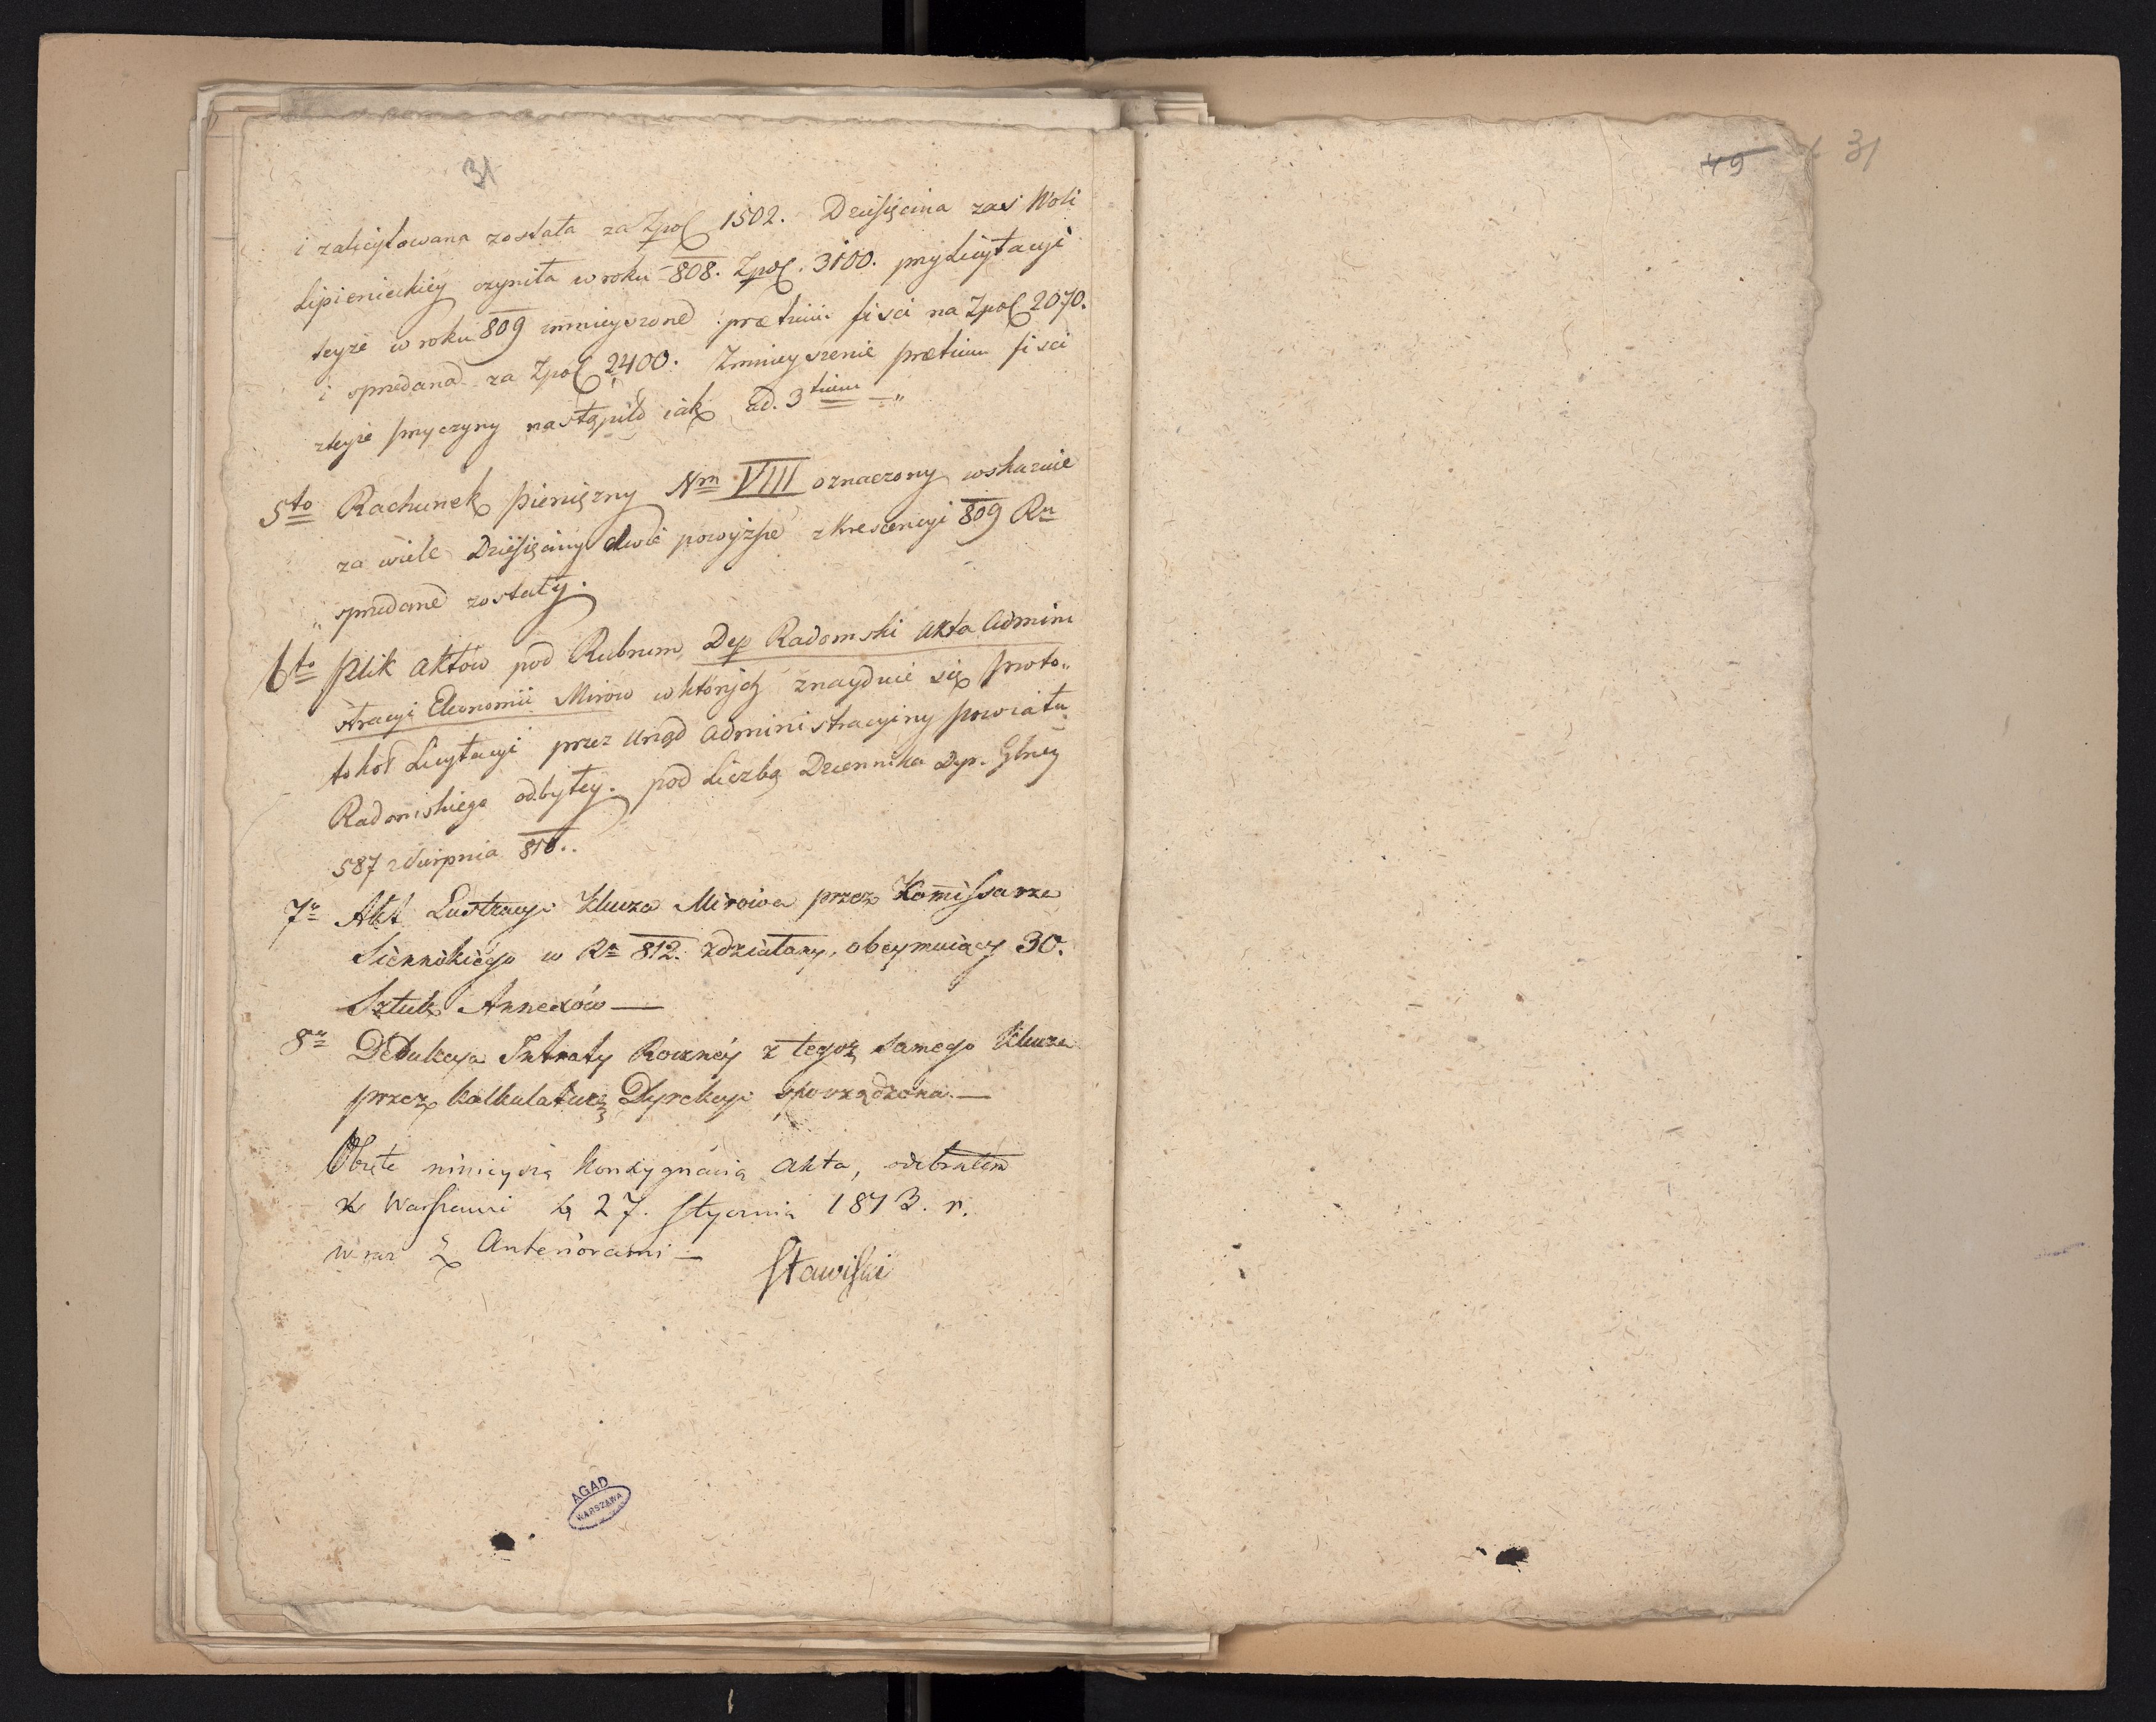 31
i zalicytowana została za Zpol 1502. Dziesięcina zaś Woli
Lipienieckiey czyniła w roku 808. Zpol. 3100. przy Licytacyi
teyże w roku 809 zmnieyszone pretium fisci na Zpol 2070.
i sprzedana za Zpol 2400. Zmnieyszenie pretium fisci
zteyże przyczyny nastąpiło iak ad. 3tium
5to Rachunek pieniężny Nm VIII oznaczony wskazuie
za wiele Dziesięciny dwie powyższe z krescencyi 809 Ru
sprzedane zostały.
6to Plik aktów pod Rubrum Dep Radomski akta admini
stracyi Ekonomii Mirow w których znayduie się proto„
tokół Licytacyi przez Urząd administracyiny powiatu
Radomskiego odbytey. pod Liczbą Dziennika Dyr. Głney
587 z Sierpnia 810..
7o Akt Lustracyi Klucza Mirowa przez Kommissarza
Siennickiego w Ru 812. zdziałany, obeymuiący 30.
Sztuk Annexów —
8o Dedukcya Intraty Roczney z tegoż samego Klucza
przez kalkulaturę Dyrekcyi sporządzona. —
Objęte ninieyszą konsygnacią akta, odebrałem
w Warszawie d. 27. Stycznia 1813. r.
wraz z Anteriorami —
Stawiski
AGAD
WARSZAWA
49
31